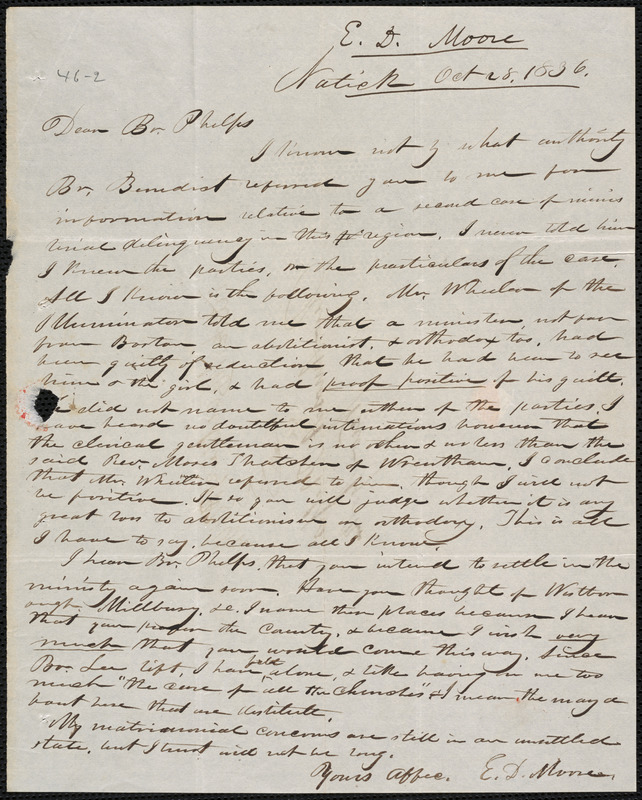 E. D. Moore
46-2
Natick Oct 28. 1836.
Dear Br. Phelps
I know not by what authority
Br. Benedict referred you to me for
information relative to a second case of minis
terial delinquency in this region. I never told him
I knew the parties, or the particulars of the case.
All I know is the following. Mr. Wheeler of the
Illuminator told me that a minister, not far
from Boston an abolitionist, & orthodox too, had
been guilty of seduction that he had been to see
him & the girl, & had proof positive of his guilt.
He did not name to me either of the parties. I
have heard no doubtful intimations however that
the clerical gentleman is no other & no less than the
said Rev. Moses Thatcher of Wrentham, I conclude
that Mr. Wheeler referred to him, though I will not
be positive. If so you will judge whether it is any
great loss to abolitionism or orthodoxy. This is all
I have to say, because all I know.
I hear Br. Phelps, that you intend to settle in the
ministry again soon. Have you thought of Westbor
ough, Millbury, &c. I name these places because I hear
that you prefer the county, & because I wish very
much that you would come this way. Since
Br. Lee left, I have felt alone, & like having on me too
much "the care of all the churches" & I mean the
bout here that are destitute.
My matrimonial concerns are still in an unsettled
state, but I trust will not be long.
Yours Affec. E. D. Moore.